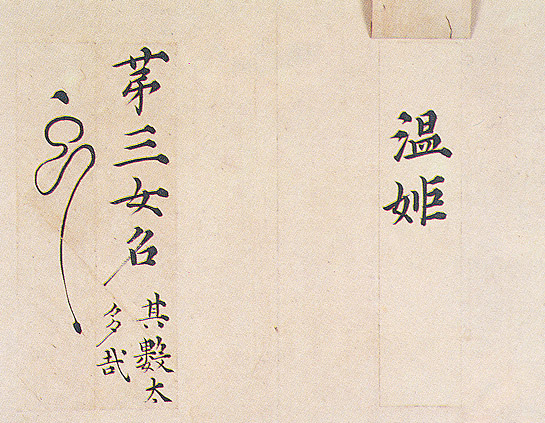 温姫
第三女名
其數太
多哉